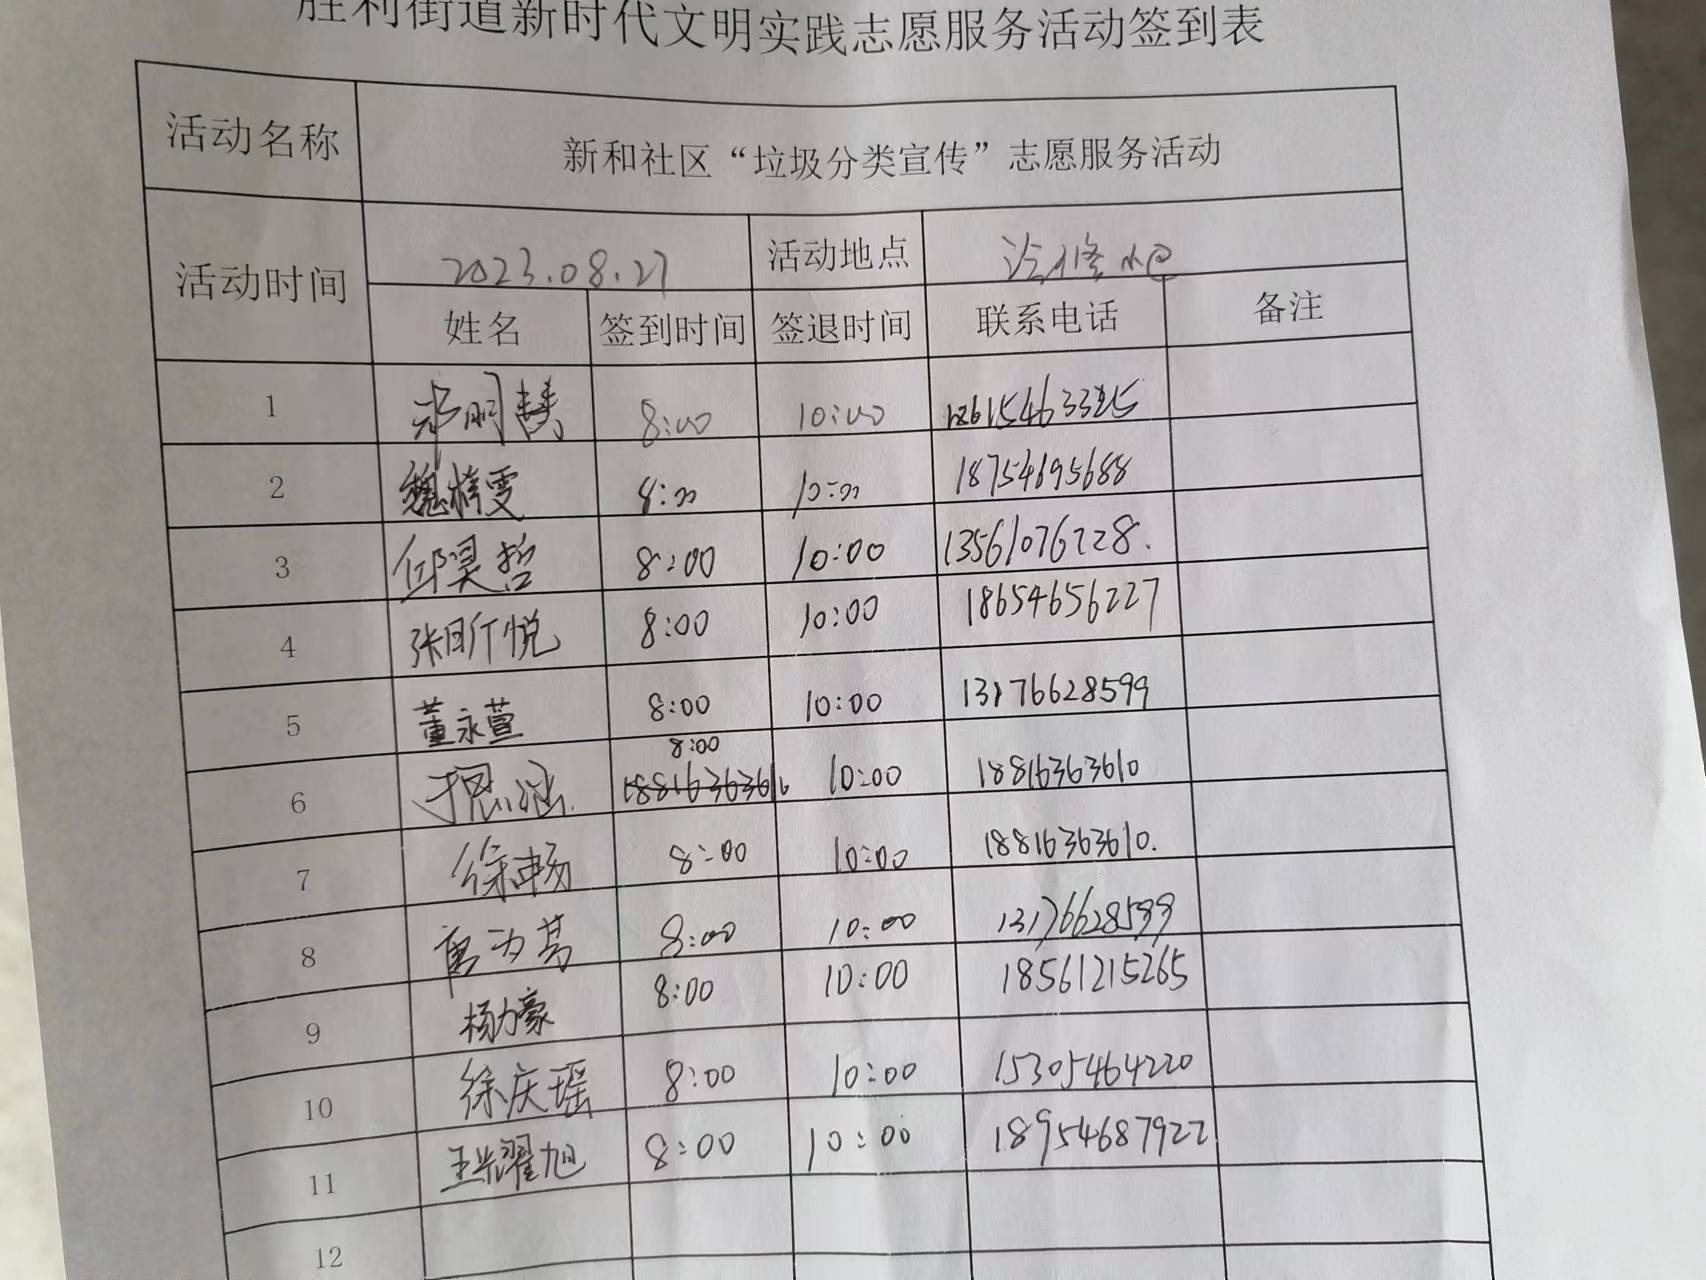 胜利街道新时代文明实践志愿服务活动签到表
活动名称 新和社区“垃圾分类宣传”志愿服务活动
活动时间 2023.08.27 活动地点
姓名 签到时间 签退时间 联系电话 备注
1 明慧 8:00 10:00
2 魏梓雯 8:00 10:00 18754695688
3 邱昊哲 8:00 10:00 13561076228.
4 张昕悦 8:00 10:00 18654656227
5 董永萱 8:00 10:00 13176628599
8:00
6 于思涵 18816363610 10:00 18816363610
7 徐畅 8:00 10:00 18816363610.
8 8:00 10:00 13176628599
9 杨力豪 8:00 10:00 18561215265
10 徐庆瑶 8:00 10:00 15305464220
11 王耀旭 8:00 10:00 18954687922
12